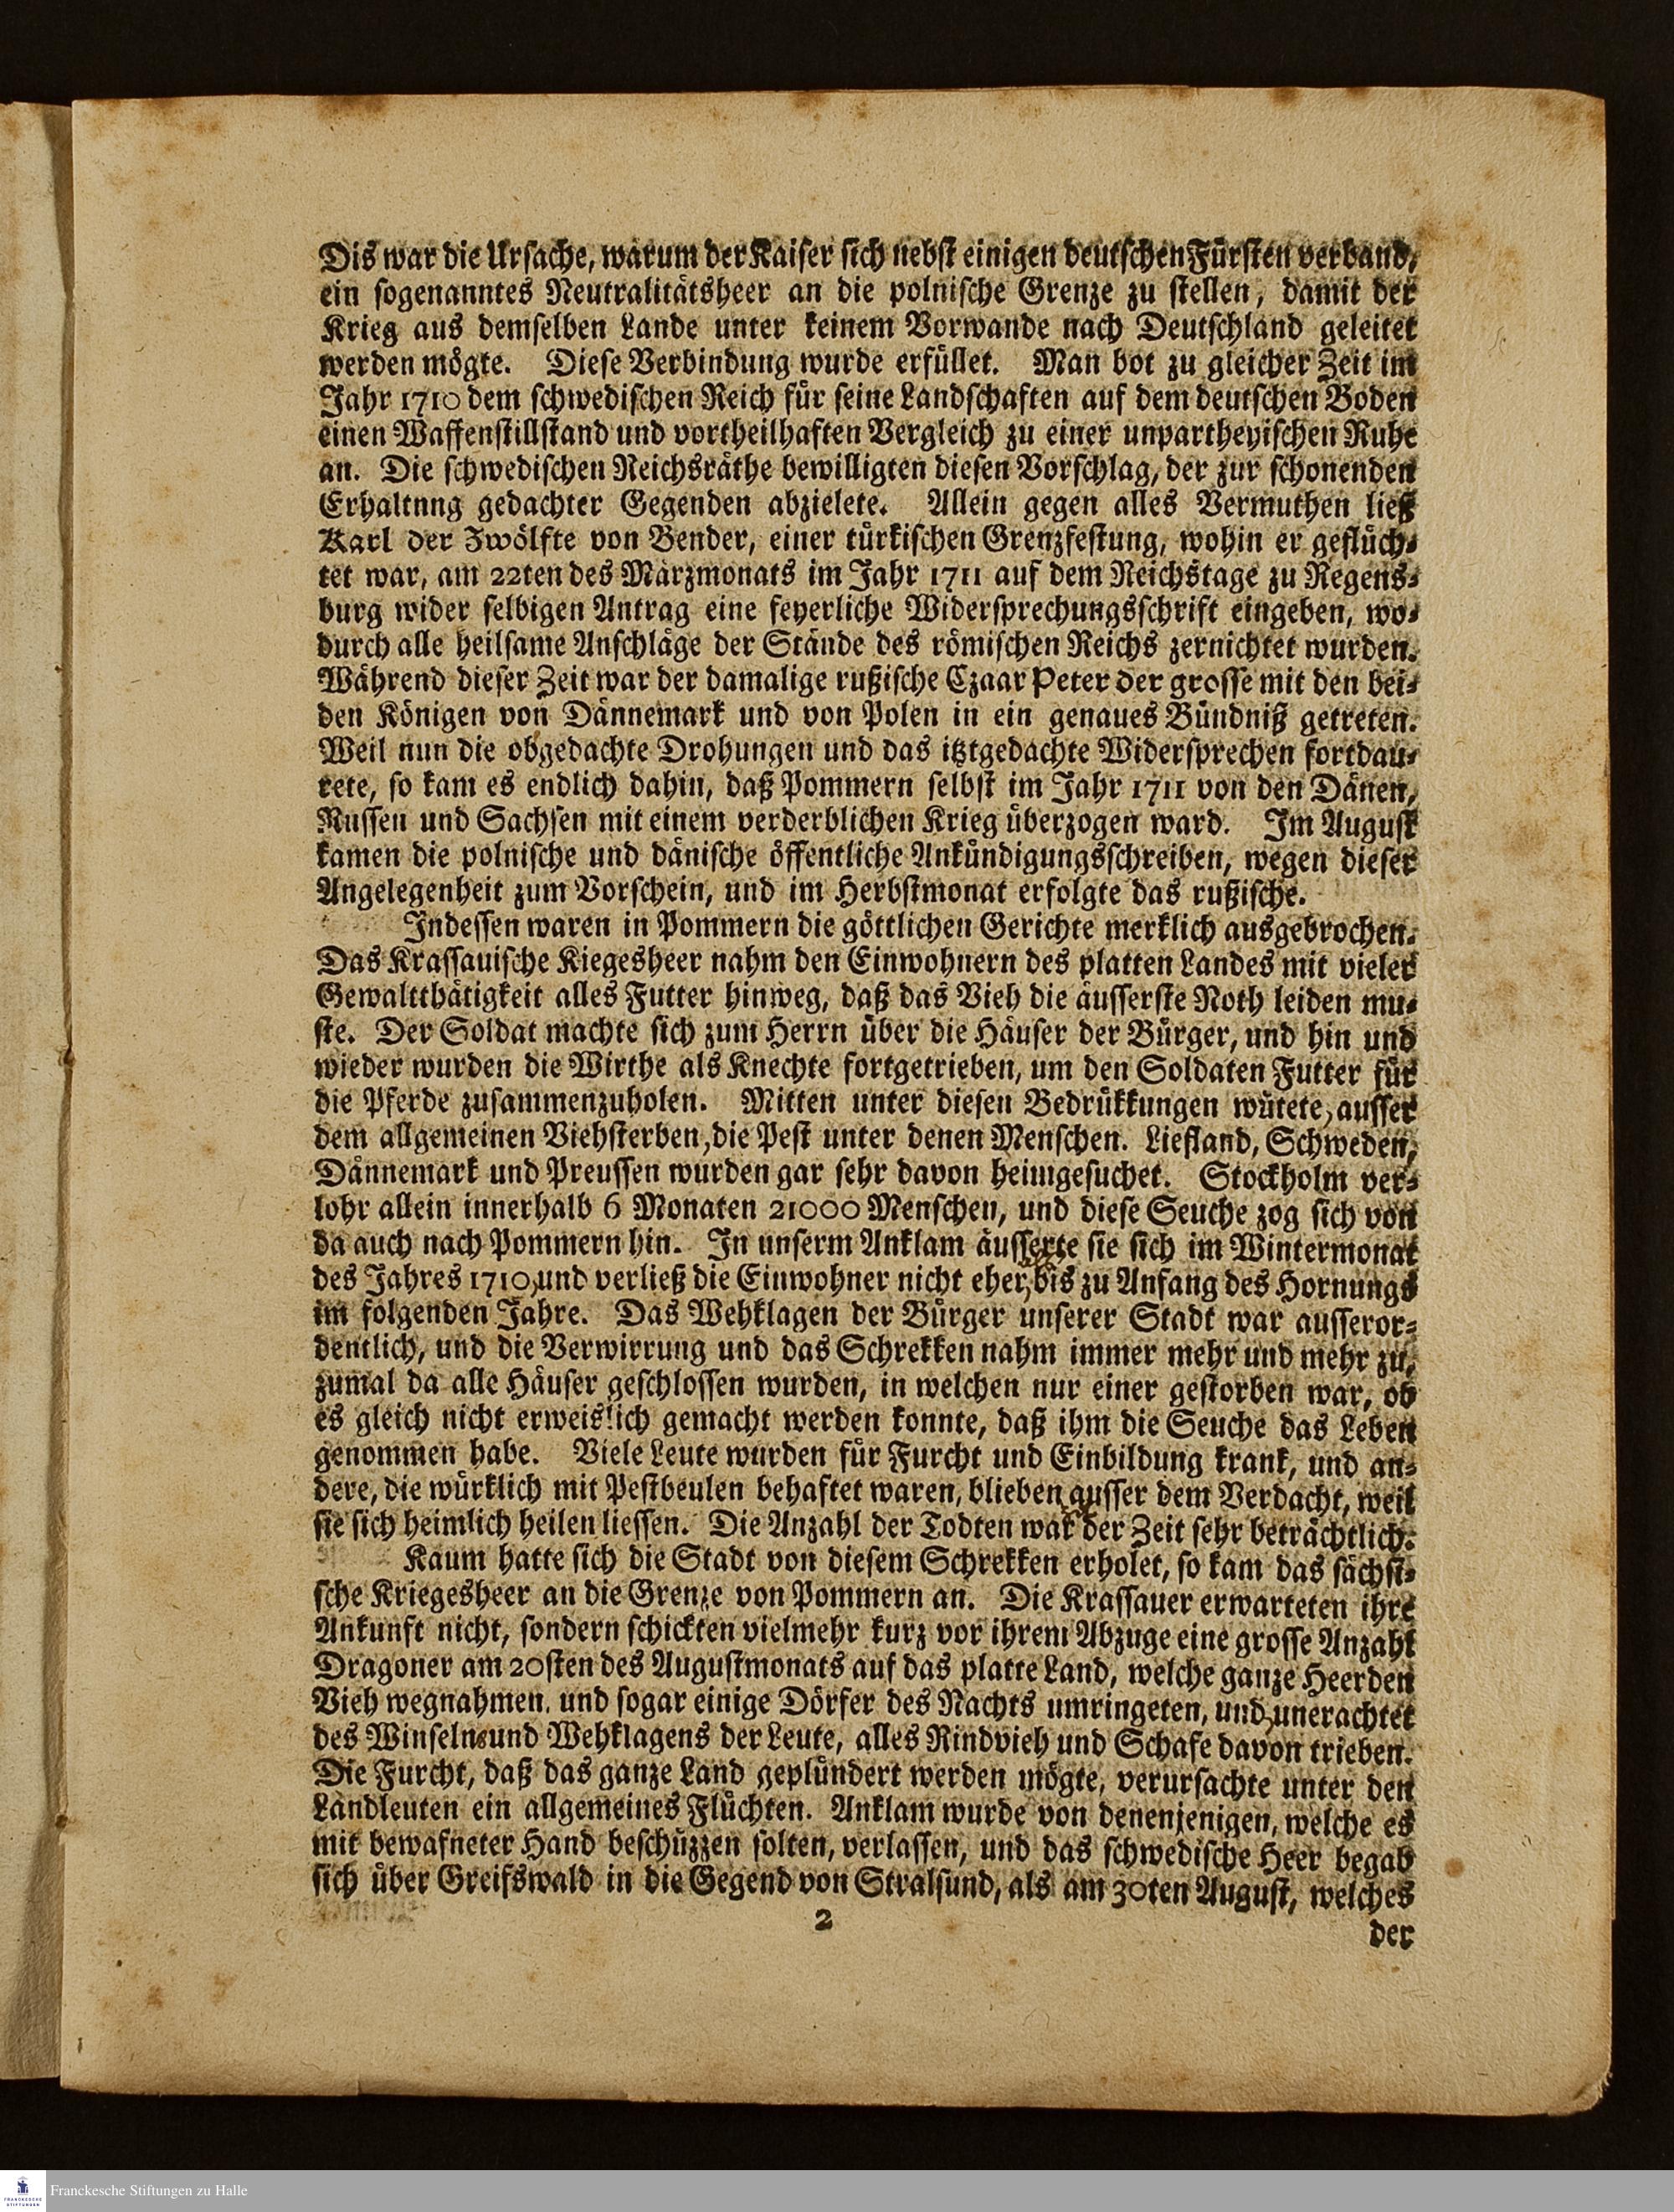 Dis war die Ursache, warum der Kaiser sich nebst einigen deutschen Fürsten verband,
ein sogenanntes Neutralitätsheer an die polnische Grenze zu stellen, damit der
Krieg aus demselben Lande unter keinem Vorwande nach Deutschland geleitet
werden mögte. Diese Verbindung wurde erfüllet. Man bot zu gleicher Zeit im
Jahr 1710 dem schwedischen Reich für seine Landschaften auf dem deutschen Boden
einen Waffenstillstand und vortheilhaften Vergleich zu einer unpartheyischen Ruhe
an. Die schwedischen Reichsräthe bewilligten diesen Vorschlag, der zur schonenden
Erhaltnng gedachter Gegenden abzielete. Allein gegen alles Vermuthen ließ
Karl der Zwölfte von Bender, einer türkischen Grenzfestung, wohin er geflüch-
tet war, am 22ten des Märzmonats im Jahr 1711 auf dem Reichstage zu Regens-
burg wider selbigen Antrag eine feyerliche Widersprechungsschrift eingeben, wo-
durch alle heilsame Anschläge der Stände des römischen Reichs zernichtet wurden.
Während dieser Zeit war der damalige rußische Czaar Peter der grosse mit den bei-
den Königen von Dännemark und von Polen in ein genaues Bündniß getreten.
Weil nun die obgedachte Drohungen und das itztgedachte Widersprechen fortdau-
rete, so kam es endlich dahin, daß Pommern selbst im Jahr 1711 von den Dänen,
Russen und Sachsen mit einem verderblichen Krieg überzogen ward. Im August
kamen die polnische und dänische öffentliche Ankündigungsschreiben, wegen dieser
Angelegenheit zum Vorschein, und im Herbstmonat erfolgte das rußische.
Indessen waren in Pommern die göttlichen Gerichte merklich ausgebrochen.
Das Krassauische Kiegesheer nahm den Einwohnern des platten Landes mit vieler
Gewaltthätigkeit alles Futter hinweg, daß das Vieh die äusserste Noth leiden mu-
ste. Der Soldat machte sich zum Herrn über die Häuser der Bürger, und hin und
wieder wurden die Wirthe als Knechte fortgetrieben, um den Soldaten Futter für
die Pferde zusammenzuholen. Mitten unter diesen Bedrükkungen wütete, ausser
dem allgemeinen Viehsterben, die Pest unter denen Menschen. Liefland, Schweden,
Dännemark und Preussen wurden gar sehr davon heimgesuchet. Stockholm ver-
lohr allein innerhalb 6 Monaten 21000 Menschen, und diese Seuche zog sich von
da auch nach Pommern hin. In unserm Anklam äusserte sie sich im Wintermonat
des Jahres 1710, und verließ die Einwohner nicht eher, bis zu Anfang des Hornungs
im folgenden Jahre. Das Wehklagen der Bürger unserer Stadt war ausseror-
dentlich, und die Verwirrung und das Schrekken nahm immer mehr und mehr zu,
zumal da alle Häuser geschlossen wurden, in welchen nur einer gestorben war, ob
es gleich nicht erweislich gemacht werden konnte, daß ihm die Seuche das Leben
genommen habe. Viele Leute wurden für Furcht und Einbildung krank, und an-
dere, die würklich mit Pestbeulen behaftet waren, blieben ausser dem Verdacht, weil
sie sich heimlich heilen liessen. Die Anzahl der Todten war der Zeit sehr beträchtlich.
Kaum hatte sich die Stadt von diesem Schrekken erholet, so kam das sächsi-
sche Kriegesheer an die Grenze von Pommern an. Die Krassauer erwarteten ihre
Ankunft nicht, sondern schickten vielmehr kurz vor ihrem Abzuge eine grosse Anzahl
Dragoner am 20sten des Augustmonats auf das platte Land, welche ganze Heerden
Vieh wegnahmen, und sogar einige Dörfer des Nachts umringeten, und, unerachtet
des Winselns und Wehklagens der Leute, alles Rindvieh und Schafe davon trieben.
Die Furcht, daß das ganze Land geplündert werden mögte, verursachte unter den
Landleuten ein allgemeines Flüchten. Anklam wurde von denenjenigen, welche es
mit bewafneter Hand beschüzzen solten, verlassen, und das schwedische Heer begab
sich über Greifswald in die Gegend von Stralsund, als am 30ten August, welches
2
der
Franckesche Stiftungen zu Halle
FRANCKESCHE
STIFTUNGEN